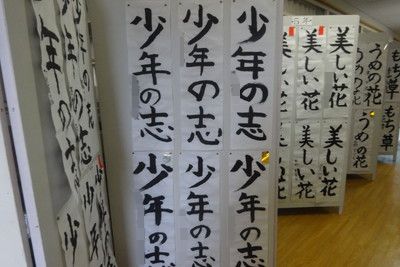 少年の志
少年の志
少年の志
少年の志
少年の志
少年の志
美しい花
美しい花
美しい花
美しい花
うめの花
うめの花
もち草
もち草